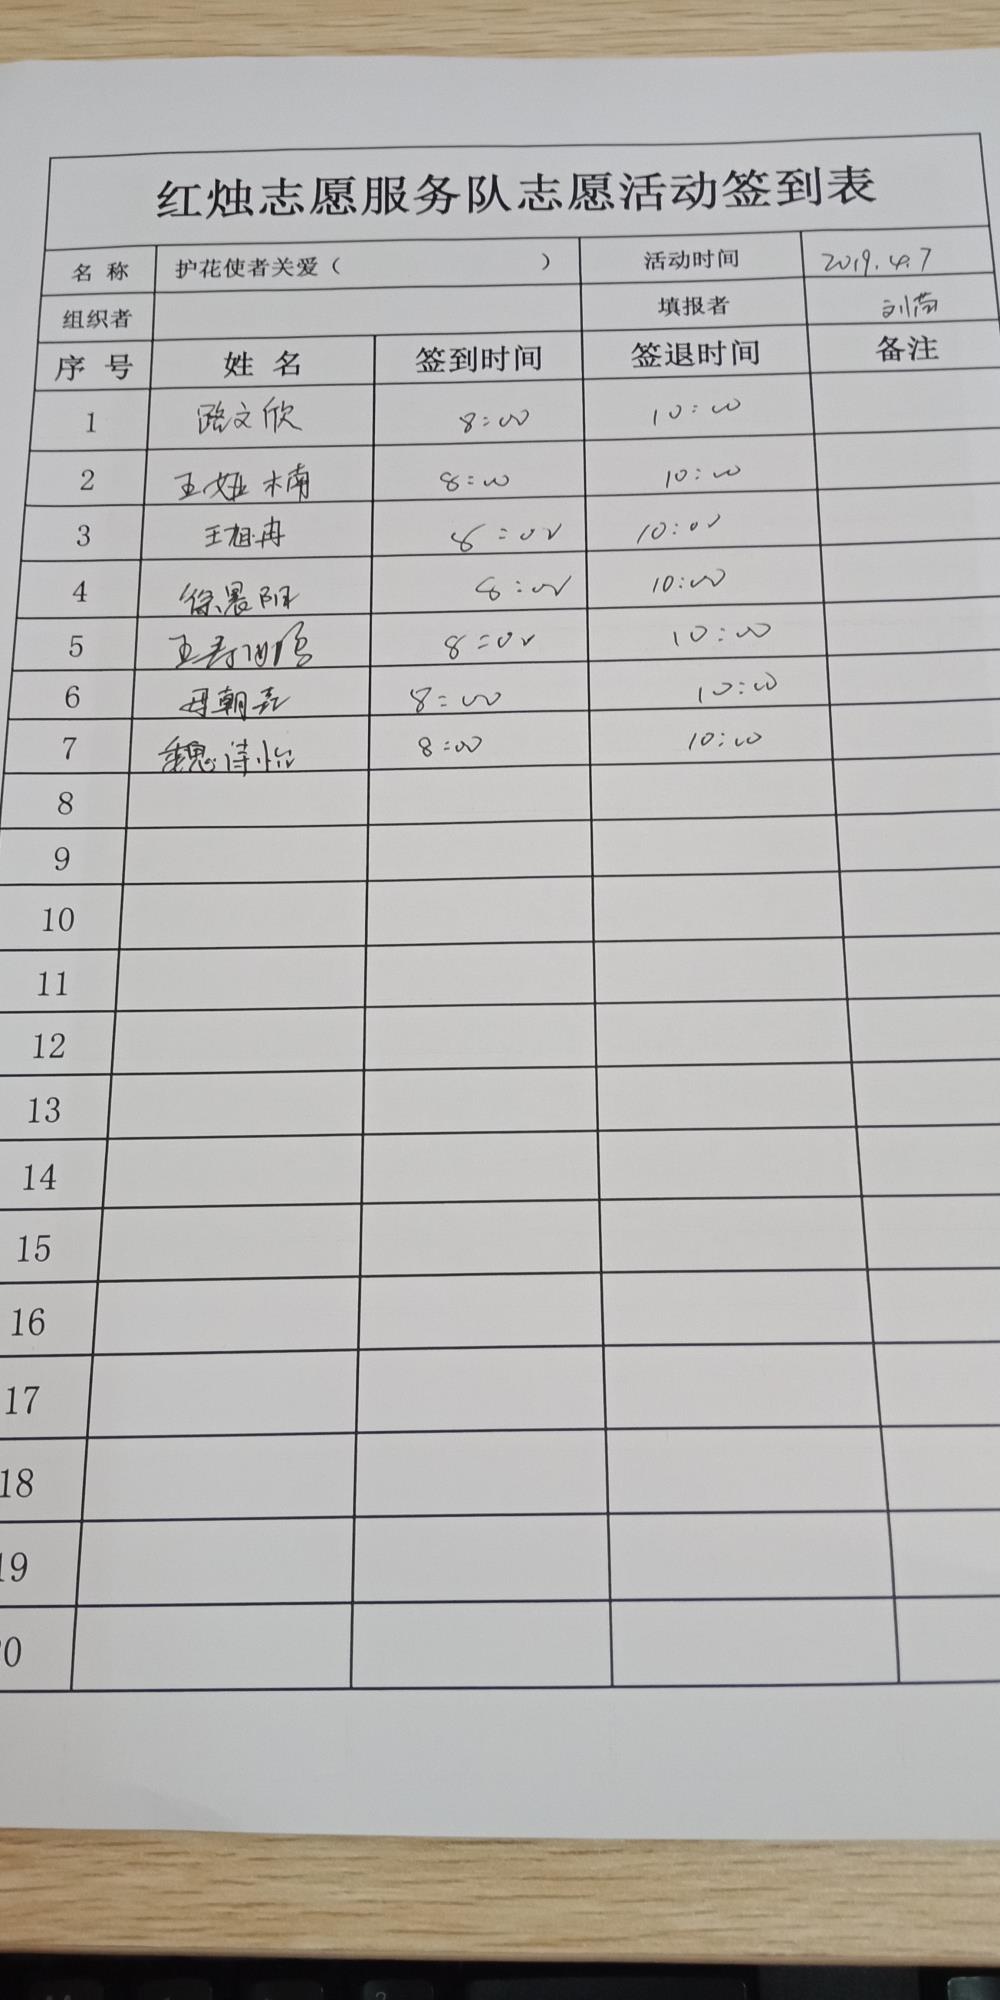 红烛志愿服务队志愿活动签到表
名 称 护花使者关爱（ ） 活动时间 2019.4.7
组织者 填报者 刘
序 号 姓 名 签到时间 签退时间 备注
1 路文欣 8:00 10:00
2 王娅楠 8:00 10:00
3 王祖冉 8:00 10:00
4 徐晨阳 8:00 10:00
5 王 8:00 10:00
6 朝 8:00 10:00
7 魏诗怡 8:00 10:00
8
9
10
11
12
13
14
15
16
17
18
19
0